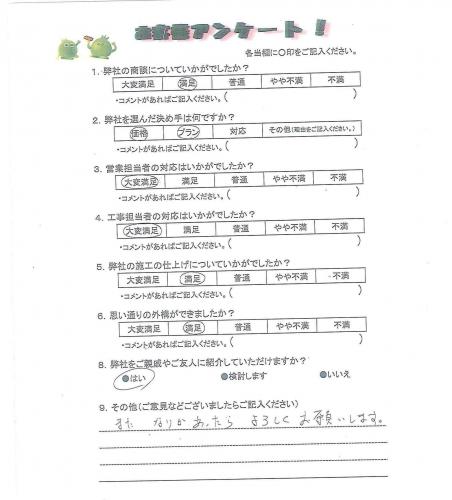 お客様アンケート！
各当欄に〇印をご記入ください。
1. 弊社の商談についていかがでしたか？
大変満足 満足 普通 やや不満 不満
・コメントがあればご記入ください。( )
2. 弊社を選んだ決め手は何ですか？
価格 プラン 対応 その他(理由をご記入ください。)
・コメントがあればご記入ください。( )
3. 営業担当者の対応はいかがでしたか？
大変満足 満足 普通 やや不満 不満
・コメントがあればご記入ください。( )
4. 工事担当者の対応はいかがでしたか？
大変満足 満足 普通 やや不満 不満
・コメントがあればご記入ください。( )
5. 弊社の施工の仕上げについていかがでしたか？
大変満足 満足 普通 やや不満 不満
・コメントがあればご記入ください。( )
6. 思い通りの外構ができましたか？
大変満足 満足 普通 やや不満 不満
・コメントがあればご記入ください。( )
8. 弊社をご親戚やご友人に紹介していただけますか？
●はい ●検討します ●いいえ
9. その他(ご意見などございましたらご記入ください)
また なりかあったら よろしく お願いします。